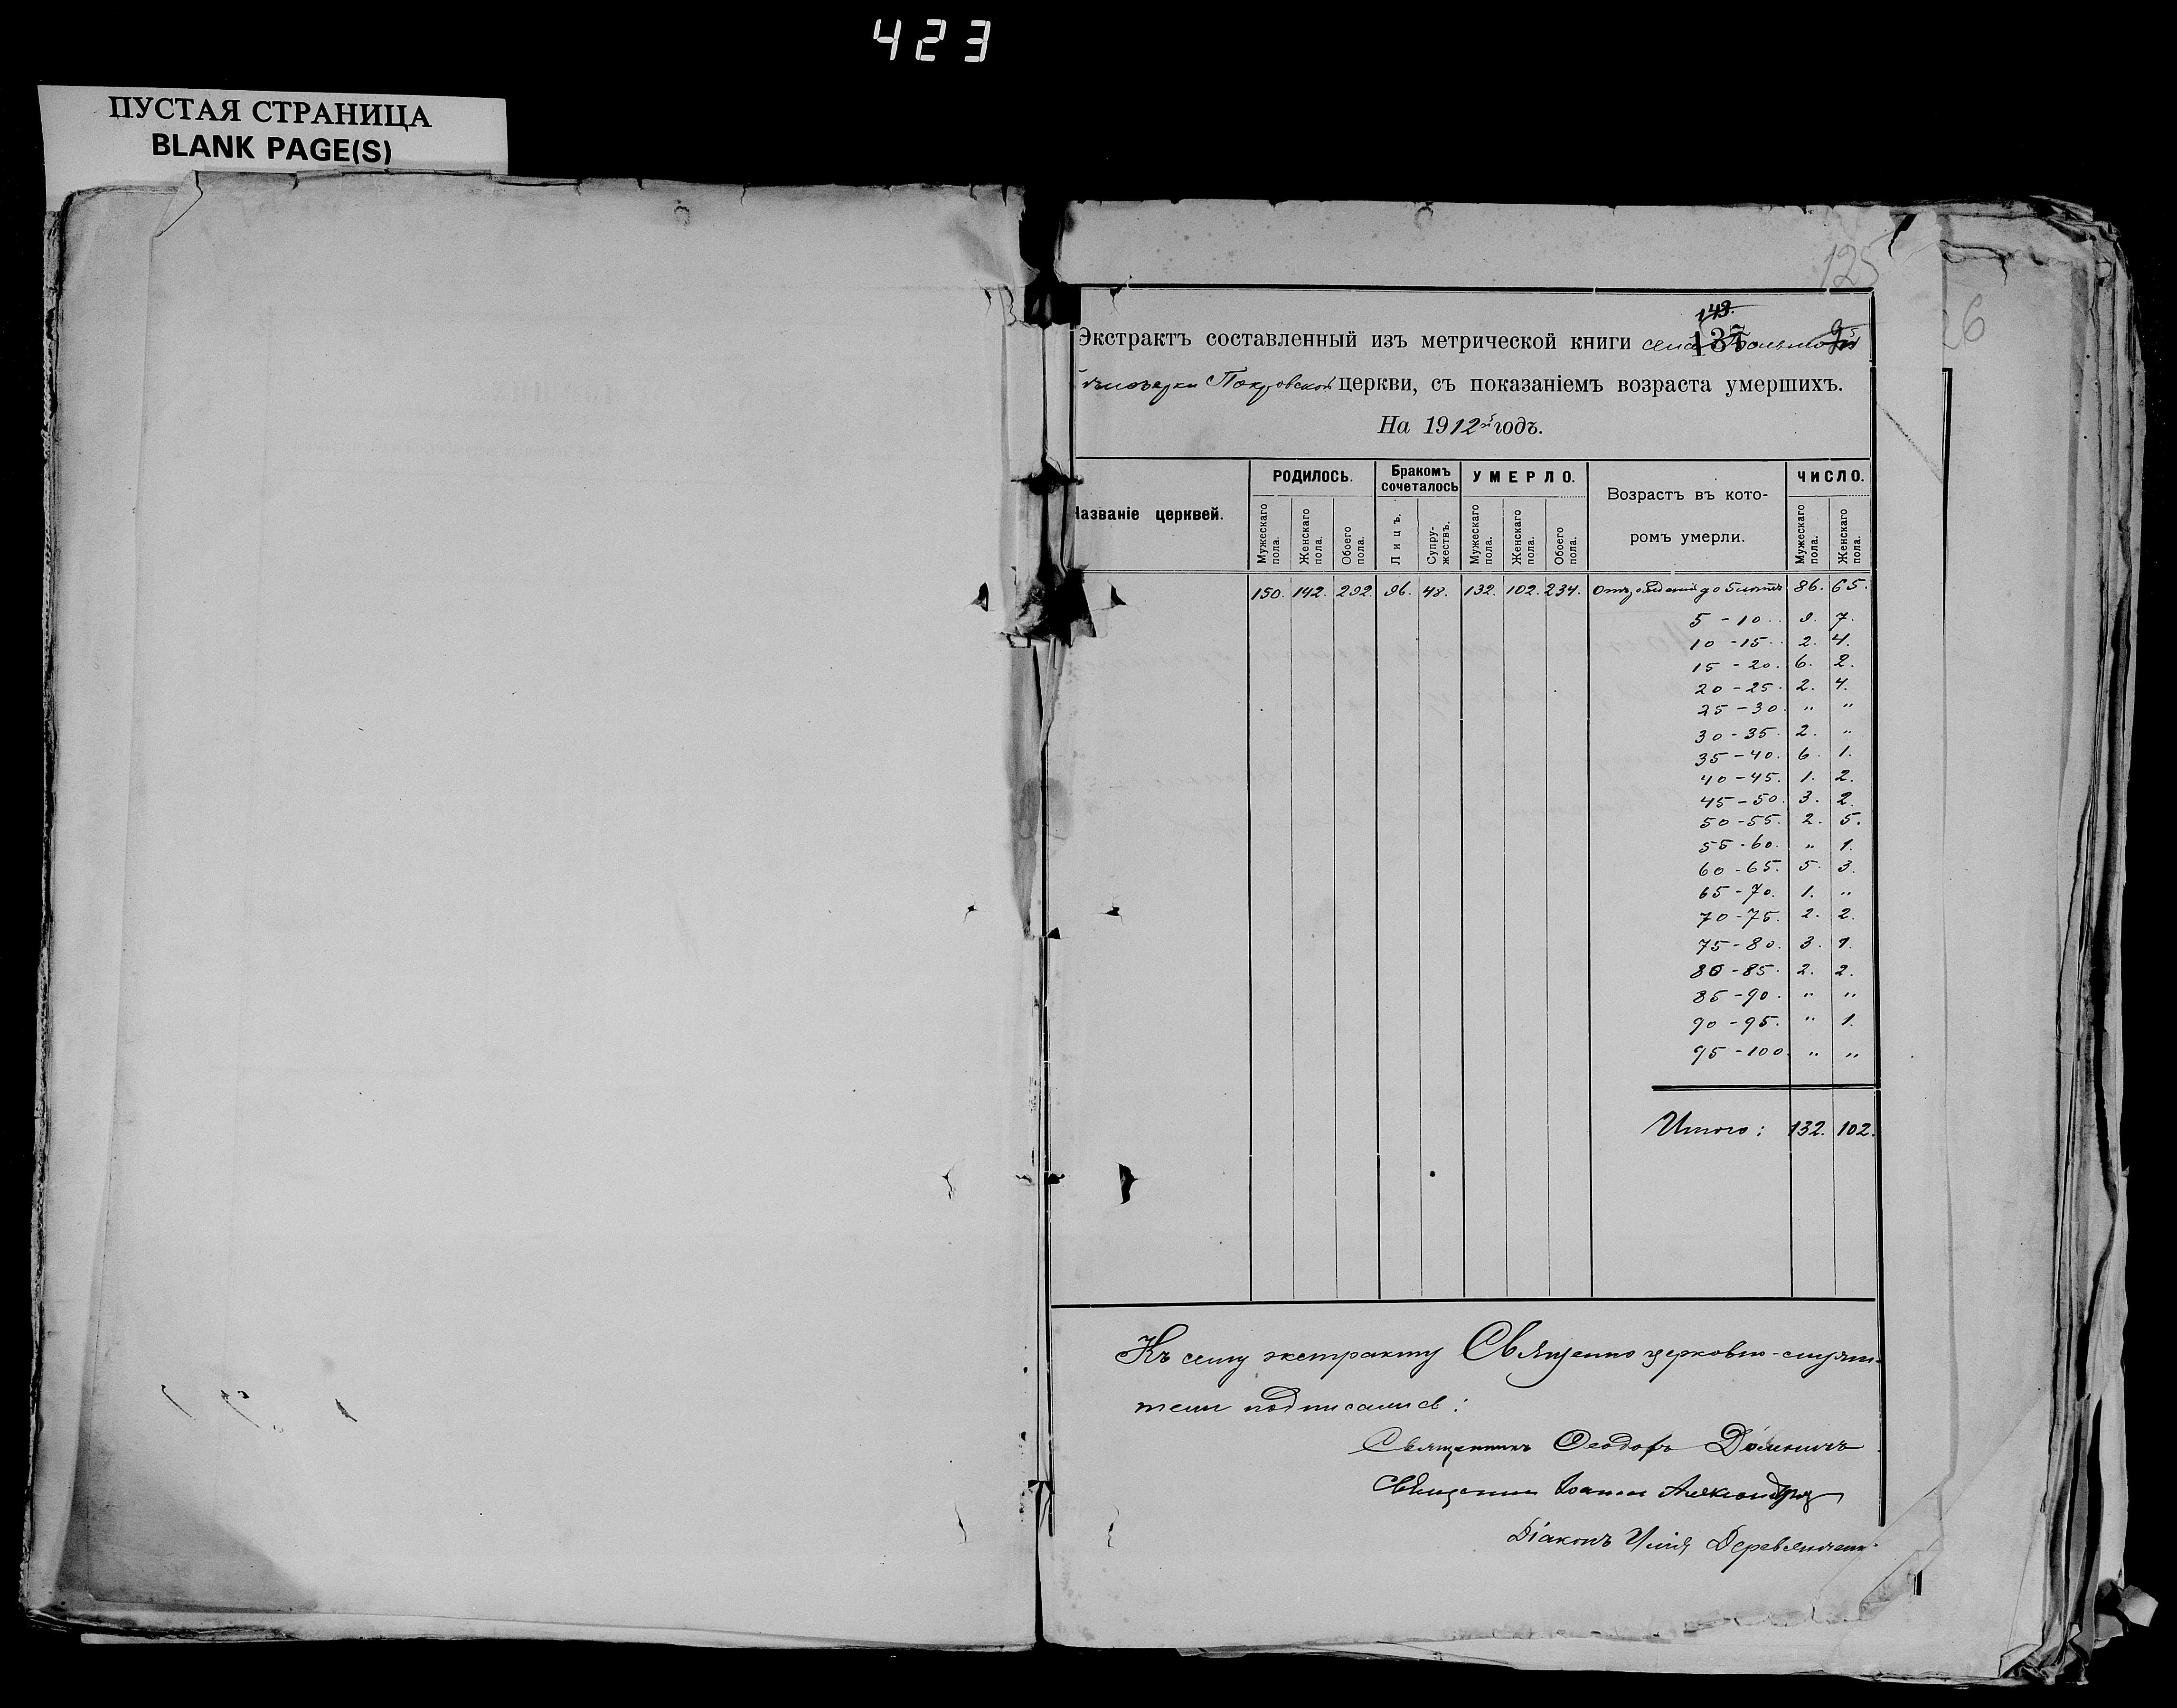 423
ПУСТАЯ СТРАНИЦА
BLANK PAGE(S)
125
26
143.
137
Экстрактъ составленный изъ метрической книги села Большой
Покровской церкви, съ показаніемъ возраста умершихъ.
На 1912й годъ.
Названіе церквей.
РОДИЛОСЬ.
Бракомъ сочеталось
УМЕРЛО.
Возрастъ въ которомъ умерли.
ЧИСЛО.
Мужескаго пола.
Женскаго пола.
Обоего пола.
Лицъ.
Супружествъ.
Мужескаго пола.
Женскаго пола.
Обоего пола.
Мужескаго пола.
Женскаго пола.
150. 142. 292. 96. 48. 132. 102. 234. Отъ рожденія до 5 лѣтъ 86. 65.
5 - 10 . . 9. 7.
10 - 15 . . 2. 4.
15 - 20. 6. 2.
20 - 25. 2. 4.
25 - 30. " "
30 - 35. 2. "
35 - 40. 6. 1.
40 - 45. 1. 2.
45 - 50. 3. 2.
50 - 55. 2. 5.
55 - 60. " 1.
60 - 65. 5. 3.
65 - 70. 1. "
70 - 75. 2. 2.
75 - 80. 3. 1.
80 - 85. 2. 2.
85 - 90. " "
90 - 95. " 1.
95 - 100. " "
Итого: 132. 102.
Къ сему экстракту Священно церковно-служи-
тели подписались:
Священникъ Ѳеодоръ
Священникъ Іоаннъ
Діаконъ Илія